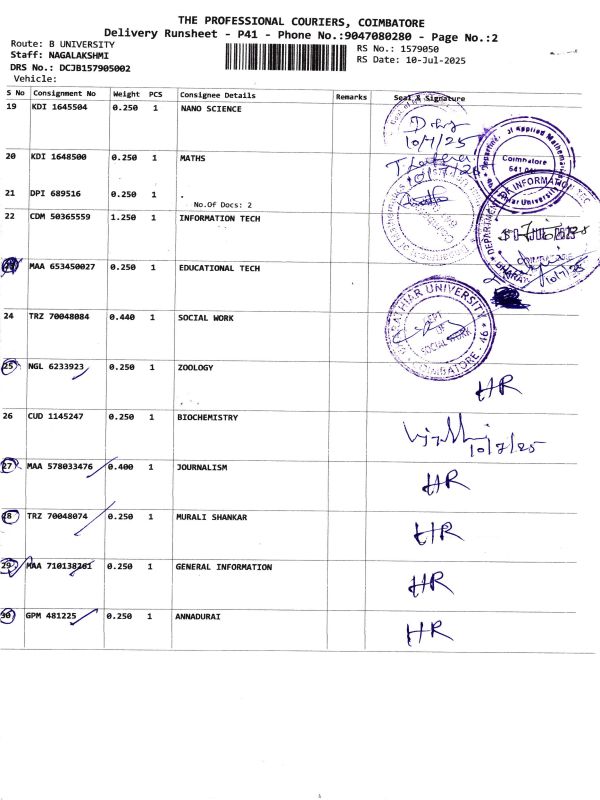 THE PROFESSIONAL COURIERS, COIMBATORE
Delivery Runsheet - P41 - Phone No.:9047080280 - Page No.:2
Route: B UNIVERSITY
RS No.: 1579050
Staff: NAGALAKSHMI
RS Date: 10-Jul-2025
DRS No.: DCJB157905002
Vehicle:
S No Consignment No Weight PCS Consignee Details Remarks Seal & Signature
19 KDI 1645504 0.250 1 NANO SCIENCE
10/7/25
20 KDI 1648500 0.250 1 MATHS
21 DPI 689516 0.250 1
No.Of Docs: 2
22 CDM 50365559 1.250 1 INFORMATION TECH
23 MAA 653450027 0.250 1 EDUCATIONAL TECH
10/7/25
24 TRZ 70048084 0.440 1 SOCIAL WORK
BHARATHIAR UNIVERSITY
DEPT OF SOCIAL WORK
COIMBATORE - 46
25 NGL 6233923 0.250 1 ZOOLOGY
HR
26 CUD 1145247 0.250 1 BIOCHEMISTRY
10/7/25
27 MAA 578033476 0.400 1 JOURNALISM
HR
28 TRZ 70048074 0.250 1 MURALI SHANKAR
HR
29 MAA 710138261 0.250 1 GENERAL INFORMATION
HR
30 GPM 481225 0.250 1 ANNADURAI
HR